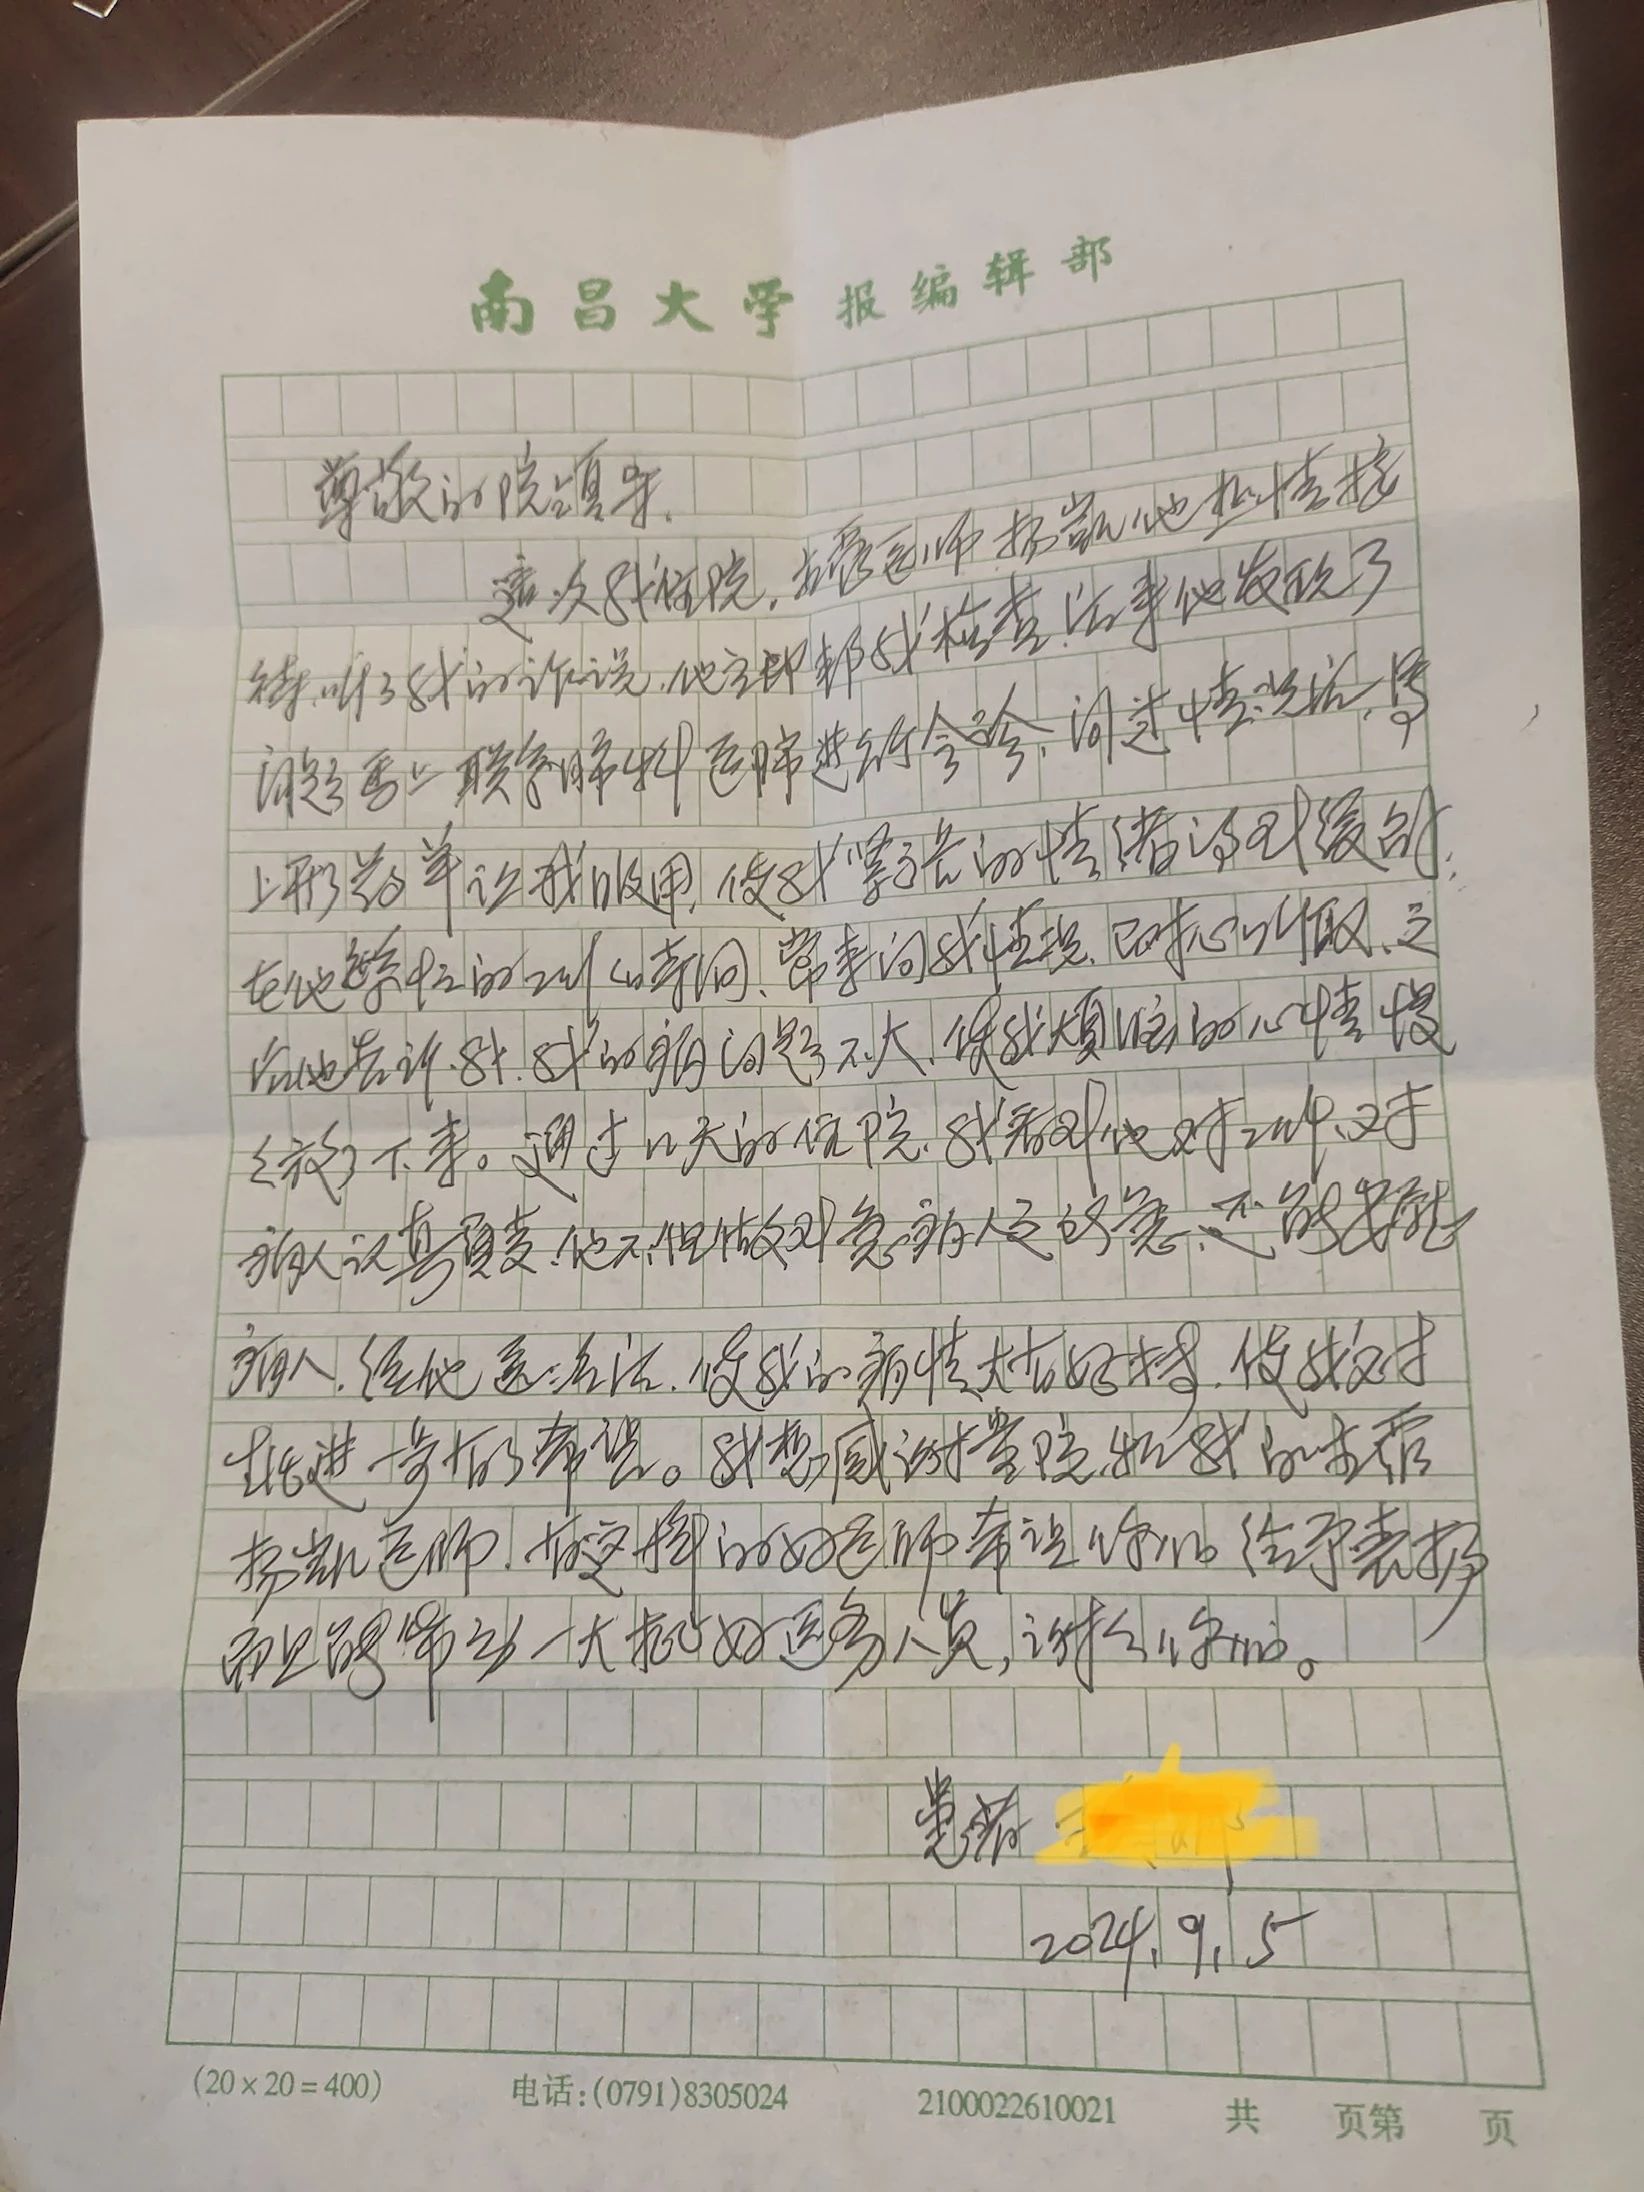 南昌大学报编辑部
尊敬的院领导.
这次我住院,主管医师杨凯他热情接
待,听了我的诉说,他立即帮我检查,后来他发现了
问题马上联系肺科医师进行会诊,问过情况后,马
上开药单让我服用,使我紧张的情绪得到缓解;
在他繁忙的工作时间,常来问我情况,耐心听取,之
后他告诉我,我的病问题不大,使我烦恼的心情慢
慢放了下来。通过几天的住院,我看到他对工作、对
病人认真负责,他不但做到急病人之所急,还能安慰
病人,经他医治后,使我的病情大有好转,使我对
生活进一步有了希望。我想感谢贵院和我的主管
杨凯医师,有这样的好医师希望你们给予表扬
而且能带动一大批好医务人员,谢谢你们。
患者
2024.9.5
(20×20=400)
电话:(0791)8305024
2100022610021
共 页第 页